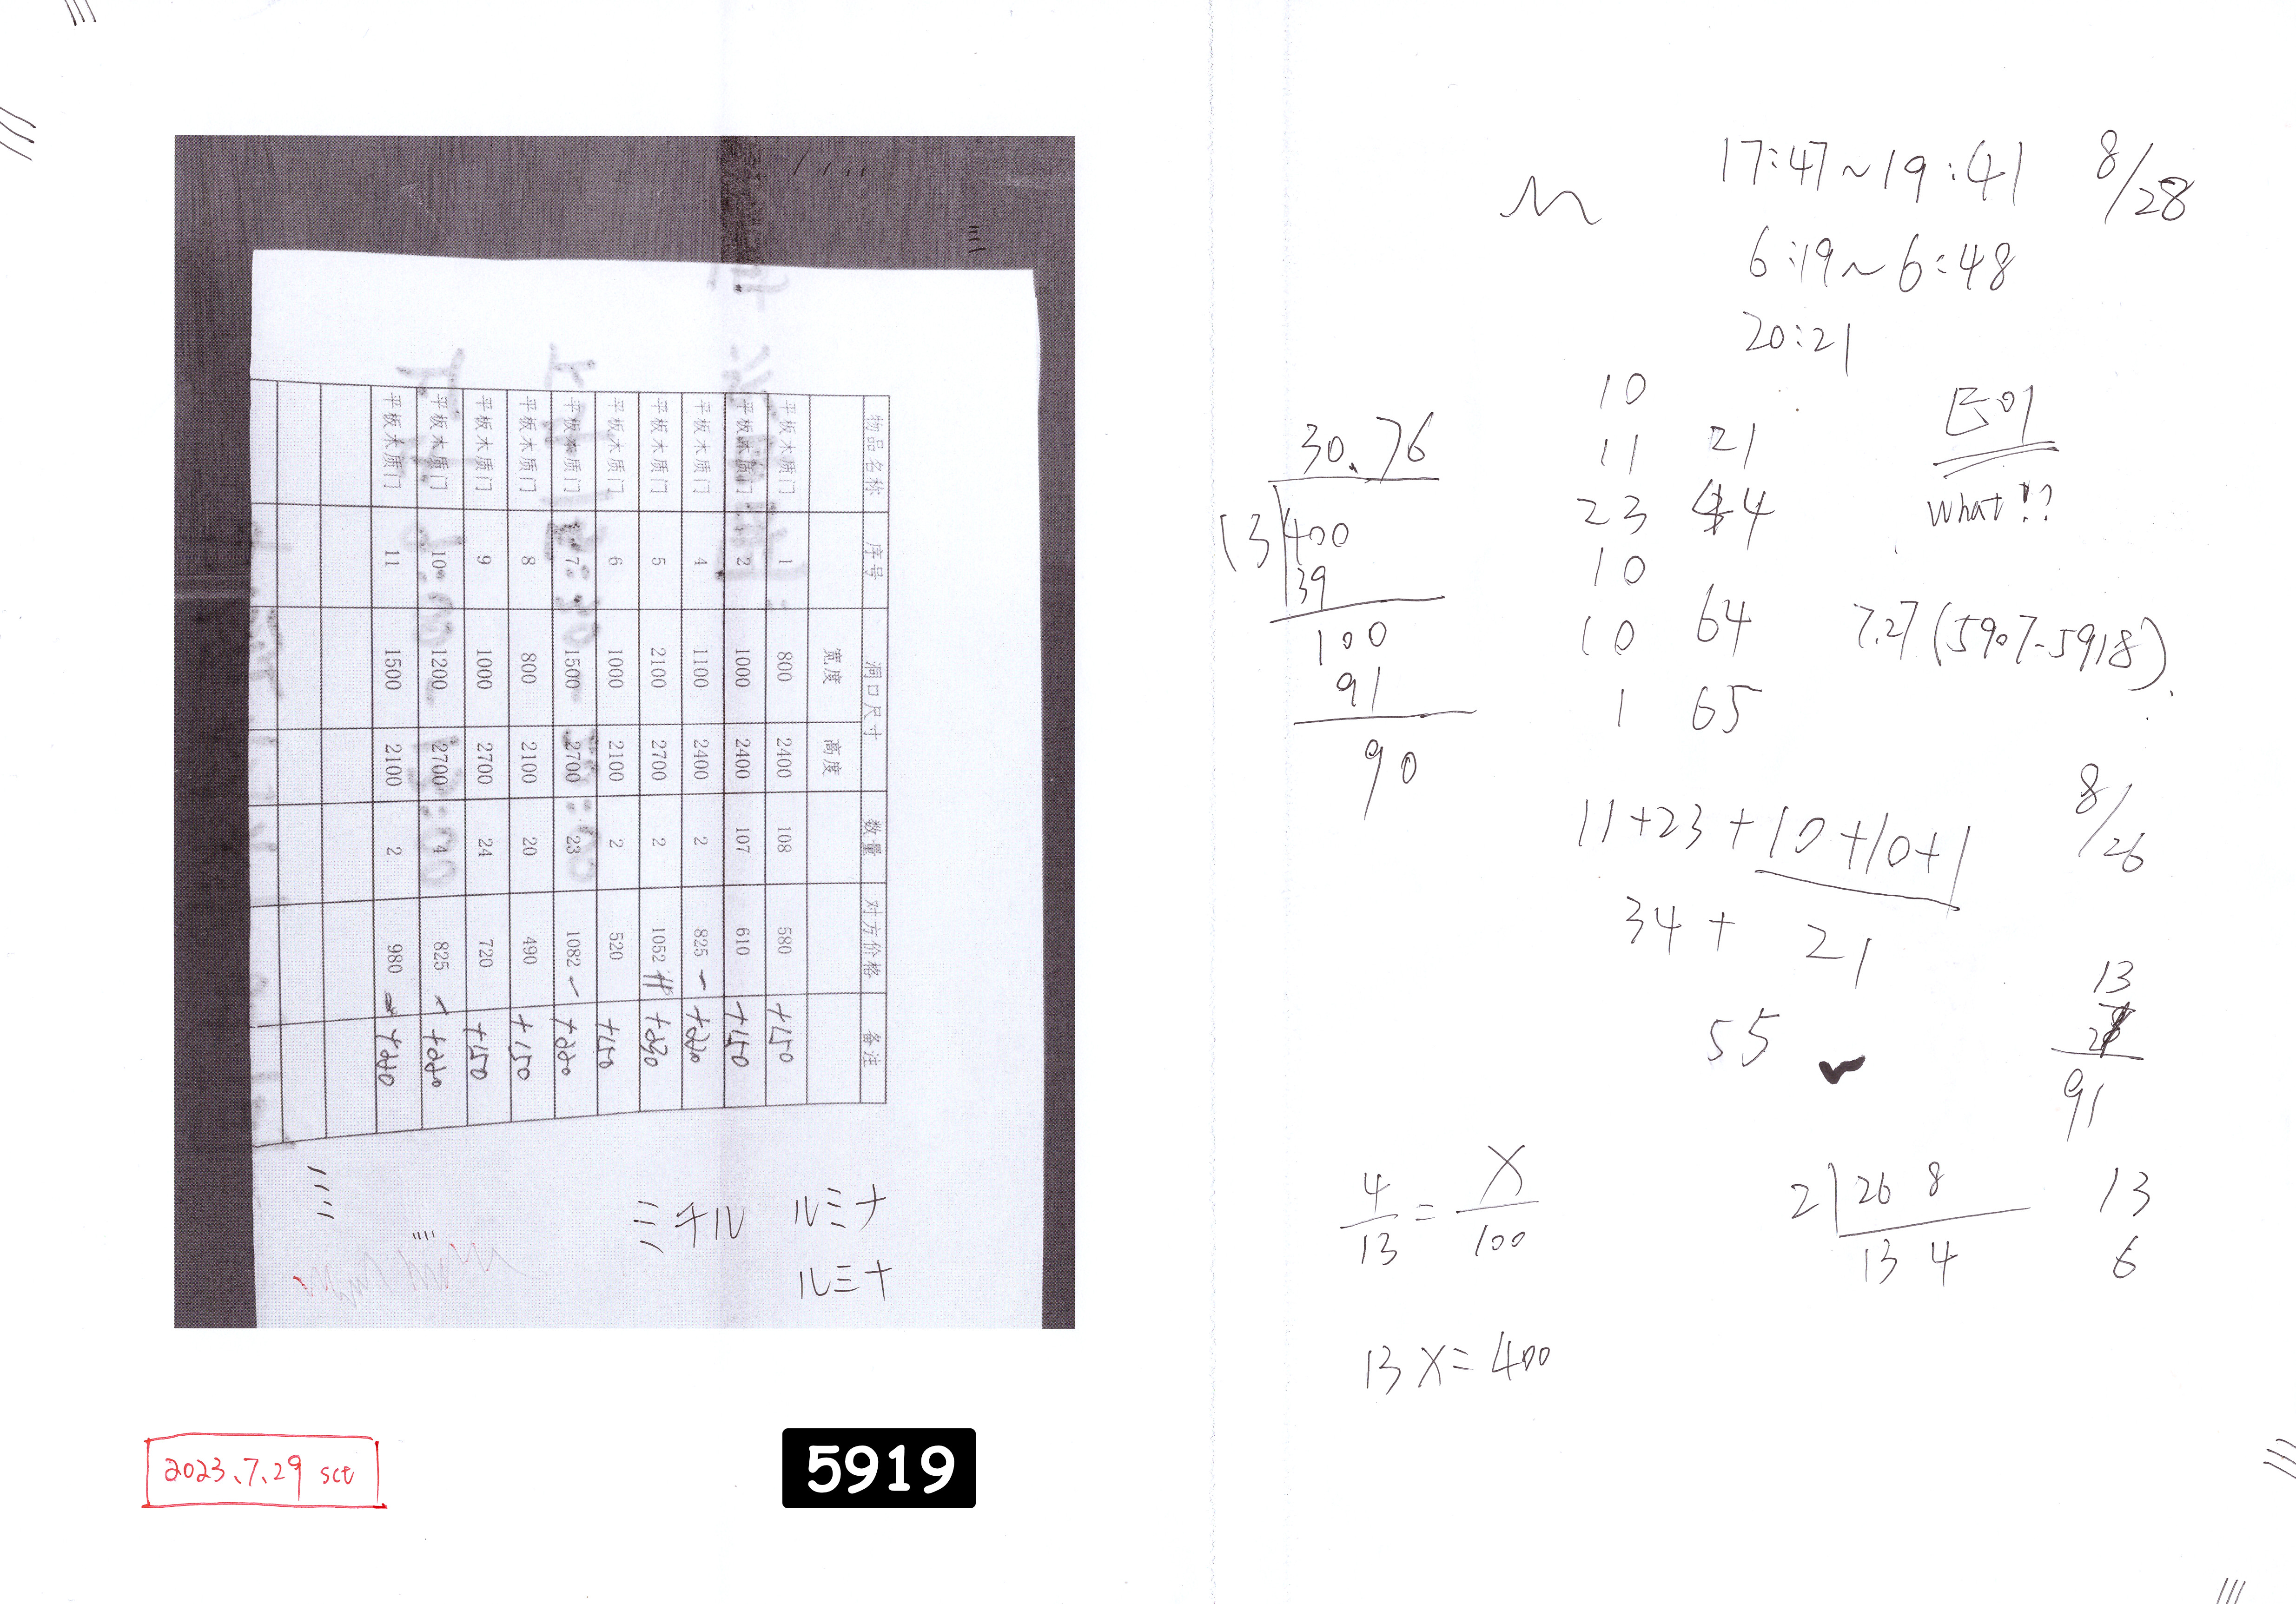 物品名称 序号 洞口尺寸 数量 对方价格 备注
宽度 高度
平板木质门 1 800 2400 108 580 +150
平板木质门 2 1000 2400 107 610 +150
平板木质门 4 1100 2400 2 825 +220
平板木质门 5 2100 2700 2 1052 +230
平板木质门 6 1000 2100 2 520 +150
平板木质门 7 1500 2700 23 1082 +220
平板木质门 8 800 2100 20 490 +150
平板木质门 9 1000 2700 24 720 +150
平板木质门 10 1200 2700 4 825 +220
平板木质门 11 1500 2100 2 980 +220
ミチル ルミナ
ルミナ
2023.7.29 sct
5919
17:47~19:41 8/28
6:19~6:48
20:21
30.76
13 400
39
100
91
90
10
11 21
23 44
10
10 64
1 65
What!??
7.27 (5907-5918).
11+23+10+10+1
34+ 21
55
8/26
13
91
4/13 = X/100
13X=400
2 26 8
13 4
13
6